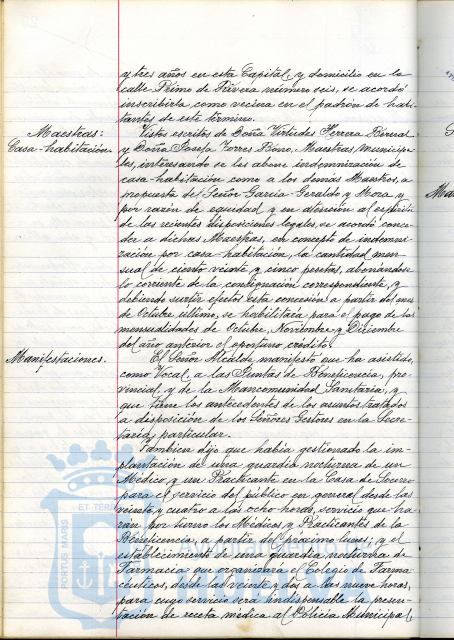 y tres años en esta Capital, y domicilio en la
calle Primo de Rivera número seis, se acordó
inscribirla como vecina en el padrón de habi-
tantes de este término.
Maestras:
Casa-habitación.
Vistos escritos de Doña Virtudes Herrera Bernal
y Doña Josefa Torres Bono, Maestras municipa-
les, interesando se les abone indemnización de
casa-habitación como a los demás Maestros, a
propuesta del Señor García-Geraldo y Mora, y
por razón de equidad y en atención al espíritu
de las recientes disposiciones legales, se acordó conce-
der a dichas Maestras, en concepto de indemni-
zación por casa-habitación, la cantidad men-
sual de ciento veinte y cinco pesetas, abonándose
lo corriente de la consignación correspondiente, y
debiendo surtir efectos esta concesión a partir del mes
de Octubre último, se habilitará para el pago de las
mensualidades de Octubre, Noviembre y Diciembre
del año anterior el oportuno crédito.
Manifestaciones.
El Señor Alcalde manifestó que ha asistido,
como Vocal, a las Juntas de Beneficencia, pro-
vincial, y de la Mancomunidad Sanitaria, y
que tiene los antecedentes de los asuntos tratados
a disposición de los Señores Gestores en la Secre-
taría particular.
Tambien dijo que había gestionado la im-
plantación de una guardia nocturna de un
Médico y un Practicante en la Casa de Socorro
para el servicio del público en general desde las
veinte y cuatro a las ocho horas, servicio que ha-
rán por turno los Médicos y Practicantes de la
Beneficencia, a partir del próximo lunes; y el
establecimiento de una guardia nocturna de
Farmacia que organizará el Colegio de Farma-
céuticos, desde las veinte y dos a las nueve horas,
para cuyo servicio será indispensable la presen-
tación de receta médica al Policía Municipal
ET TERRA
FORTUS MARIS